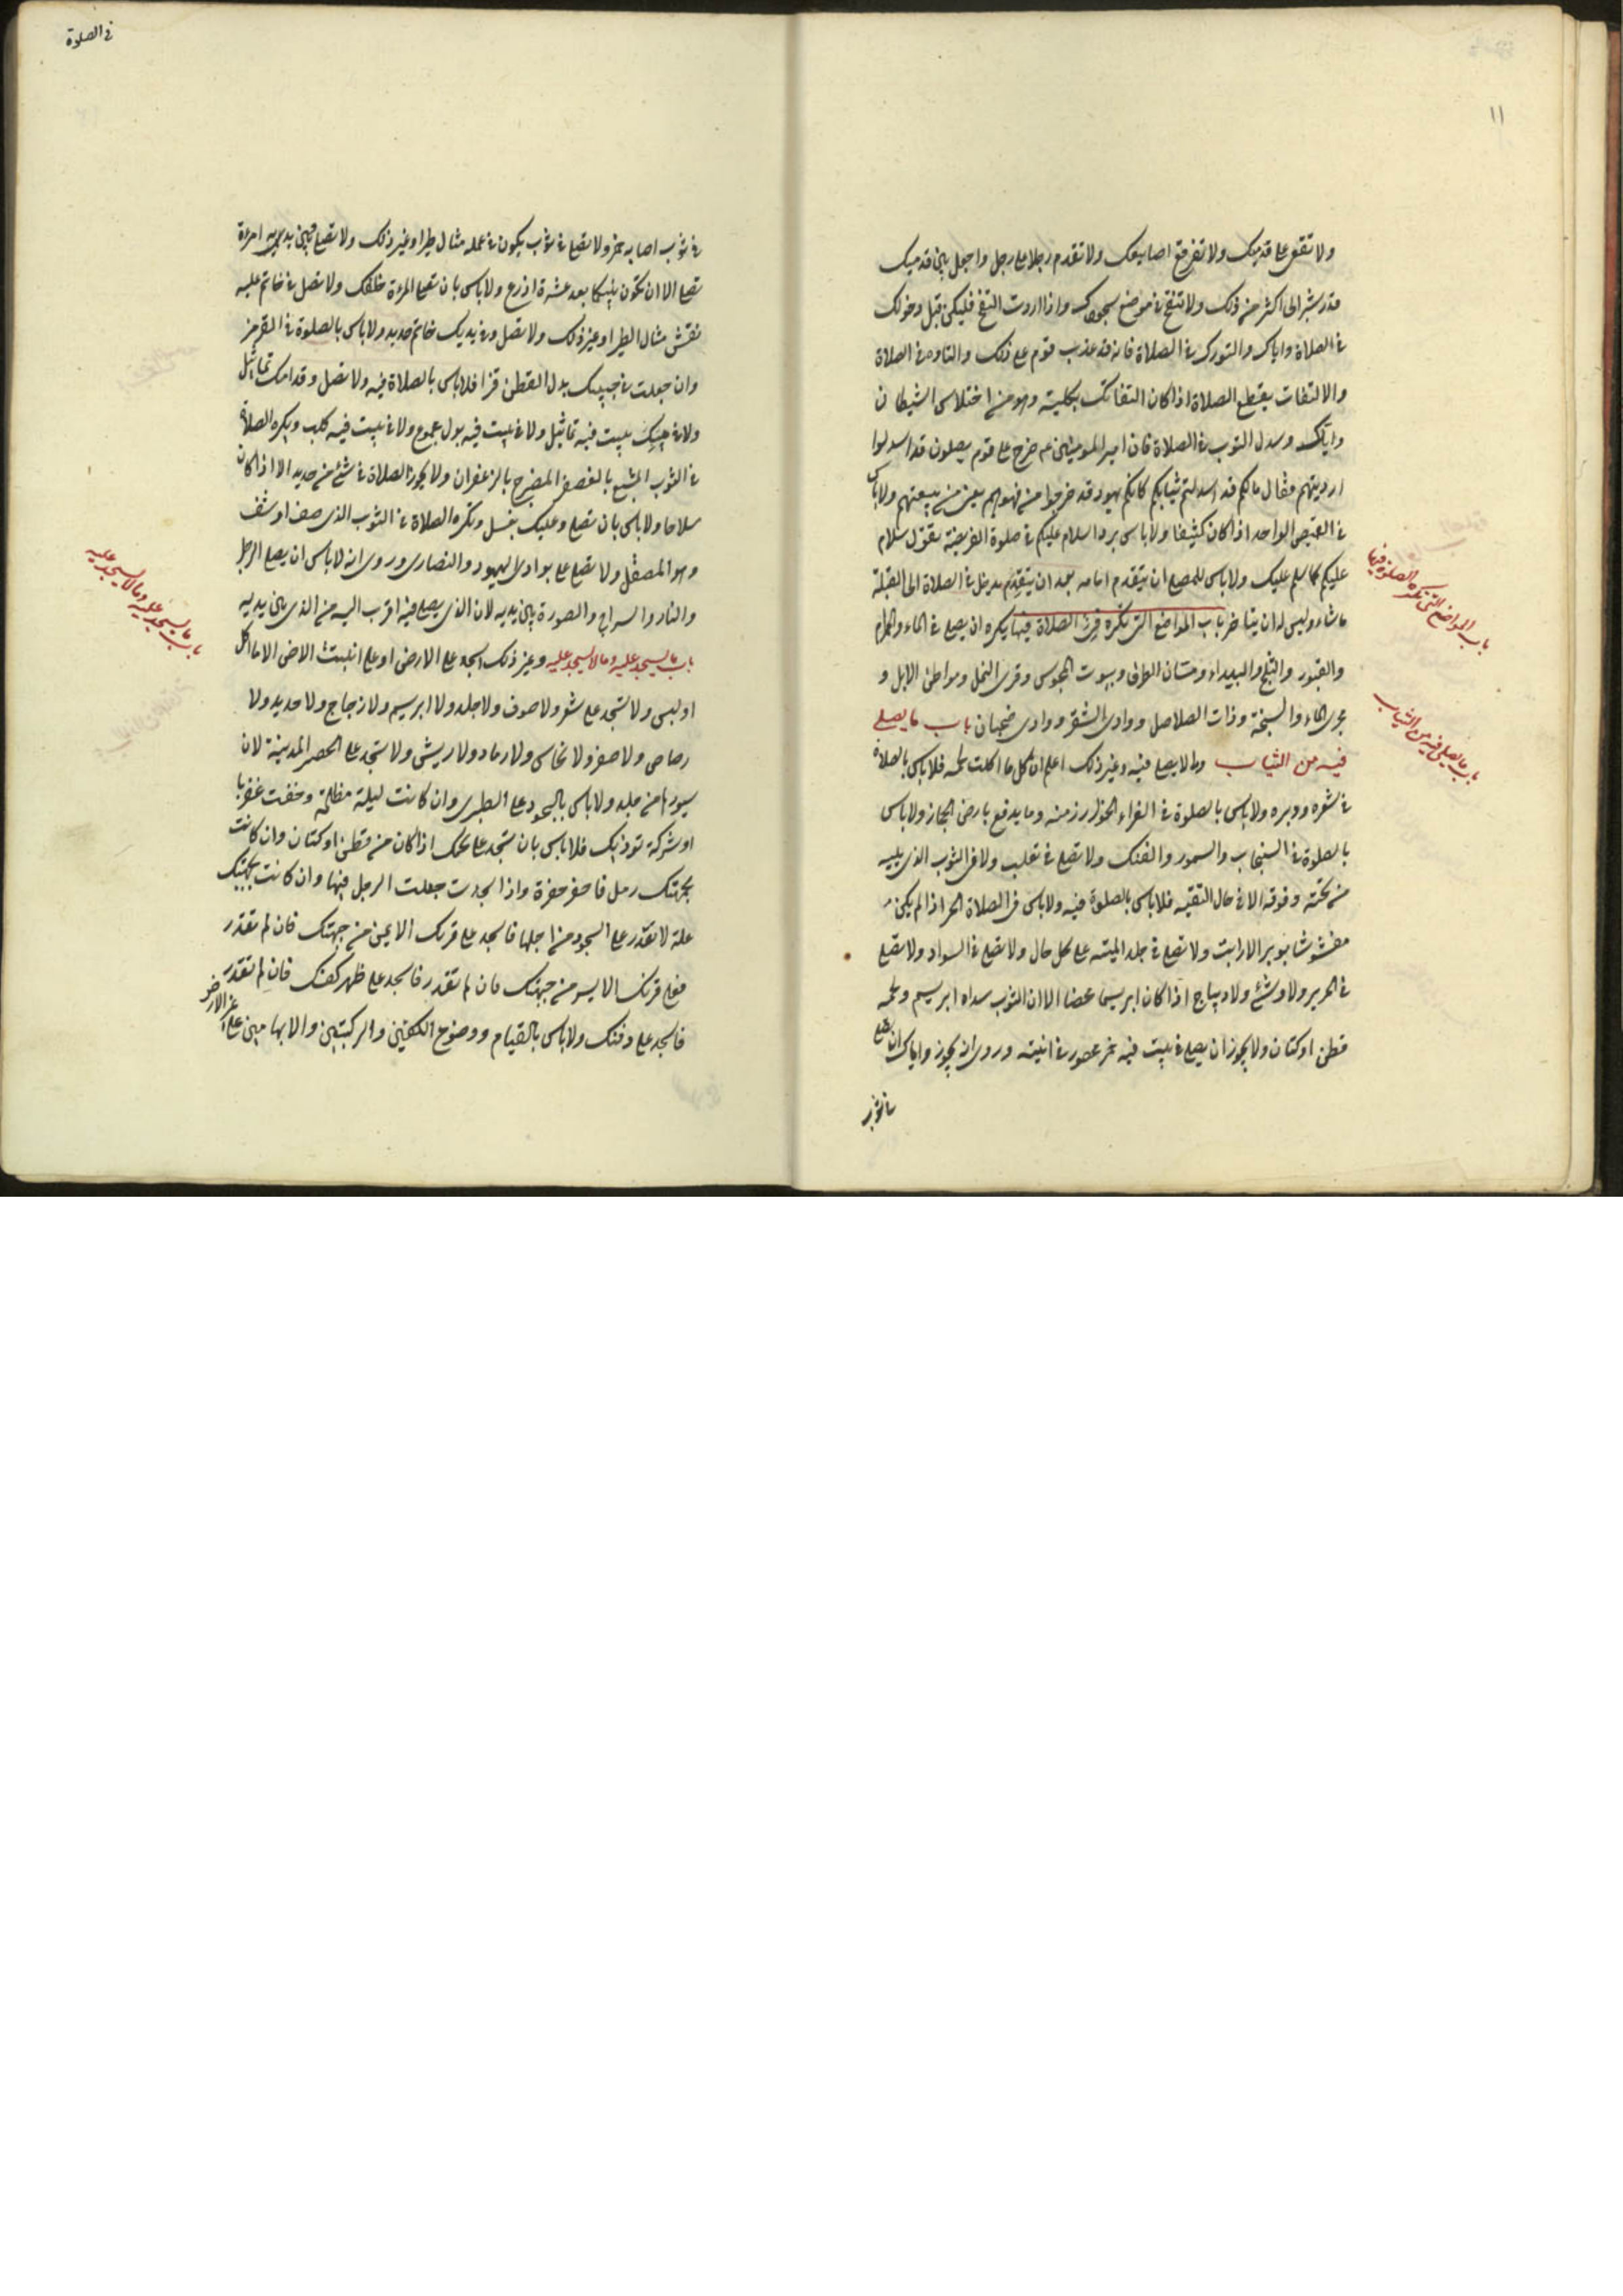 ١١
ولا تقع على قدميك ولا تفرقع اصابعك ولا تقدم رجلا على رجل واجعل بين قدميك
قدر شبر الى اكثر من ذلك ولا تنفخ في موضع سجودك واذا اردت النفخ فليكن قبل دخولك
في الصلاة واياك والتورك في الصلاة فانه قد عذب قوم على ذلك والتاوه في الصلاة
والالتفات يقطع الصلاة اذا كان التفاتك بكليته وهو من اختلاس الشيطان
واياك وسدل الثوب في الصلاة فان امير المومنين عم خرج على قوم يصلون قد اسدلوا
ارديتهم فقال مالكم قد اسدلتم ثيابكم كانكم يهود قد خرجوا من فهرهم يعني من بيعتهم ولا باس
في القميص الواحد اذا كان كثيفا ولا باس برد السلام عليكم في صلوة الفريضة بقول سلام
عليكم كما سلم عليك ولا باس للمصلي ان يتقدم امامه بعد ان يدخل في الصلاة الى القبلة
ما شاء وليس له ان يتاخر باب المواضع التي تكره فى الصلاة فيها يكره ان يصلي في الماء والحمام
والقبور والثلج والبيداء ومسان الطرق وبيوت المجوس وقرى النمل ومواطن الابل و
مجرى الماء والسبخة وذات الصلاصل ووادى الشقرة ووادى ضجنان باب ما يصلى
فيه من الثياب وما لا يصلي فيه وغير ذلك اعلم ان كل ما اكلت لحمه فلا باس بالصلاة
في شعره ووبره ولا باس بالصلوة في الفراء الخوارزمية وما يدبغ بارض الحجاز ولا باس
بالصلوة في السنجاب والسمور والفنك ولا تصل في ثعلب ولا في الثوب الذي يليه
من تحته وفوقه الا في حال التقيه فلا باس بالصلوة فيه ولا باس في الصلاة الخز اذا لم يكن
مغشوشا بوبر الارانب ولا تصل في جلد الميته على كل حال ولا تصل في السواد ولا تصل
في الحرير ولا وشئ ولا ديباج اذا كان ابريسما محضا الا ان الثوب سداه ابريسم ولحمه
قطن او كتان ولا يجوز ان يصلي في بيت فيه خمر محصور في انيته وروي انه يجوز واياك ان تصلي
في ثوب
باب المواضع التي تكره الصلوة فيها
باب ما يصلى فيه من الثياب
في الصلوة
في ثوب اصابه خمر ولا تصل في ثوب يكون في عمله مثال طير او غير ذلك ولا تصل وبين يديه امرءة
تصلي الا ان تكون بينكما بعد عشرة اذرع ولا باس بان تصلي المرءة خلفك ولا تصل في خاتم عليه
نقش مثال الطير او غير ذلك ولا تصل وفي يديك خاتم حديد ولا باس بالصلوة في القرمز
وان جعلت في جبيبك بدل القطن قزا فلا باس بالصلاة فيه ولا تصل وقدامك تماثيل
ولا في بيت فيه تماثيل ولا في بيت فيه بول مجموع ولا في بيت فيه كلب ويكره الصلاة
في الثوب المشبع بالعصفر المضرج بالزعفران ولا يجوز الصلاة في شئ من حديد الا اذا كان
سلاحا ولا باس بان تصلي وعليك نعل ويكره الصلاة في الثوب الذي صف او شف
وهو المصقل ولا تصل على بوارى اليهود والنصارى وروى انه لا باس ان يصلي الرجل
والنار والسراج والصورة بين يديه لان الذي يصلي فيه اقرب اليه من الذي بين يديه
باب ما يسجد عليه وما لا يسجد عليه وغير ذلك اسجد على الارض او على انبتت الارض الا ما اكل
او لبس ولا تسجد على شعر ولا صوف ولا جلد ولا ابريسم ولا زجاج ولا حديد ولا
رصاص ولا صفر ولا نحاس ولا رماد ولا ريش ولا تسجد على الحصر المدينة لان
سيورها من جلد ولا باس بالسجود على الطبرى وان كانت ليلة مظلمة وخفت عقربا
او شوكة توذيك فلا باس بان تسجد على كمك اذا كان من قطن او كتان وان كانت
بجبهتك رمل فاحفر حفرة واذا سجدت جعلت الرمل فيها وان كانت بجبهتك
علة لا تقدر على السجود من اجلها فاسجد على قرنك الايمن من جبهتك فان لم تقدر
فعلى قرنك الايسر من جبهتك فان لم تقدر فاسجد على ظهر كفك فان لم تقدر
فاسجد على ذقنك ولا باس بالقيام ووضوع الكفين والركبتين والابهامين على غير الارض
باب ما يسجد عليه وما لا يسجد عليه